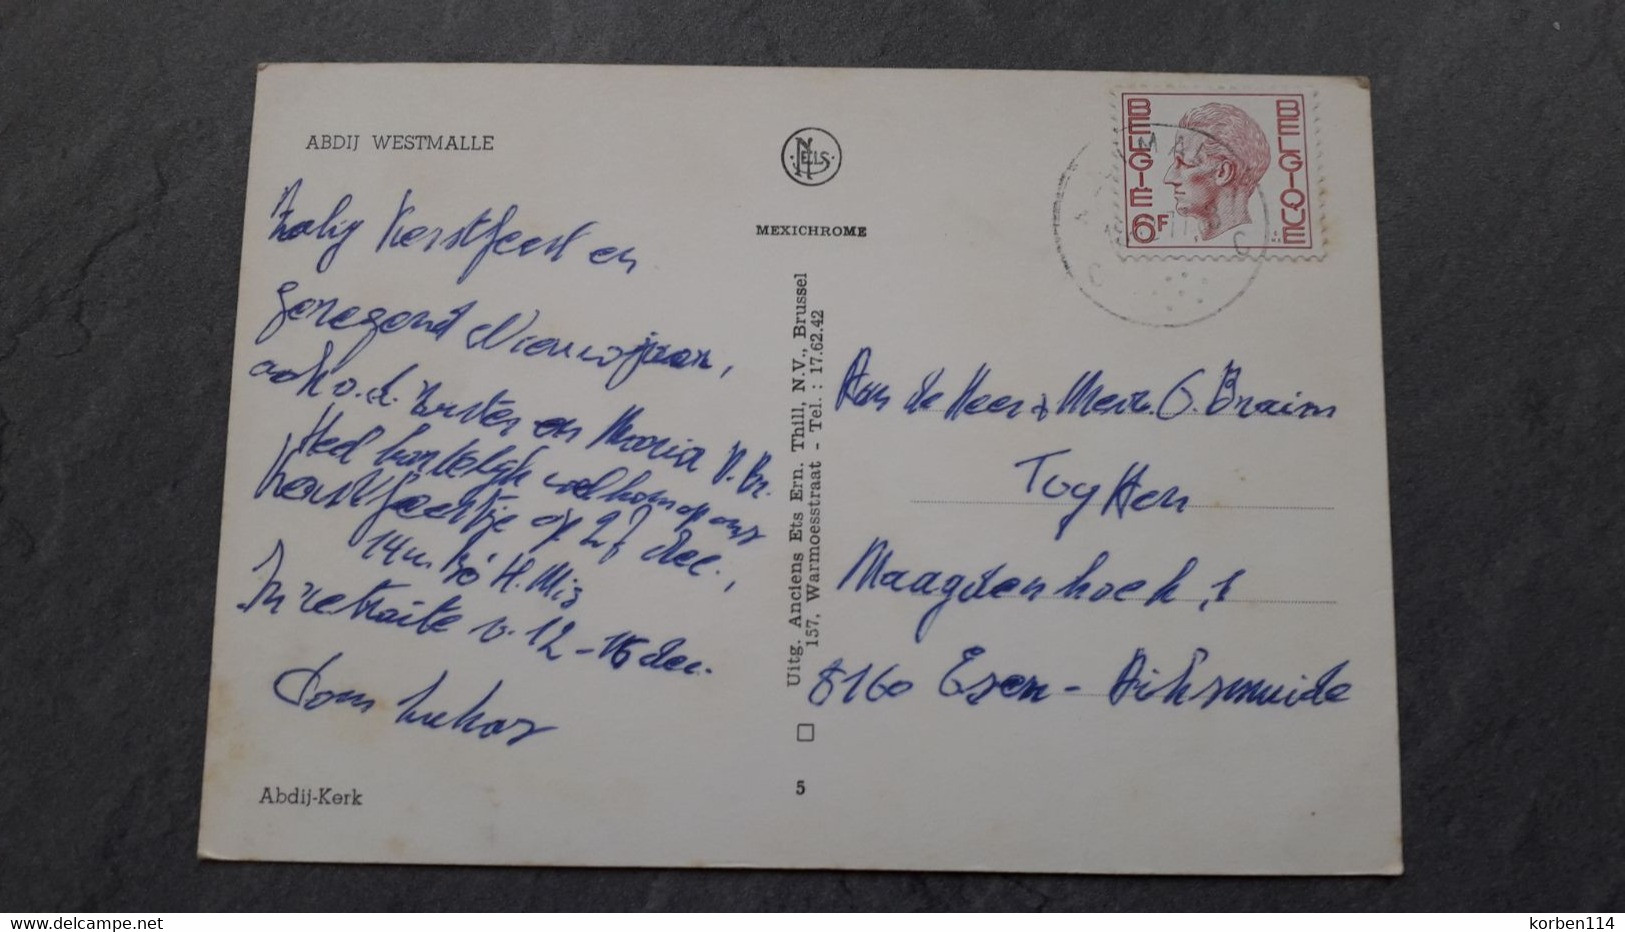 ABDIJ WESTMALLE
Zalig Kerstfeest en
gezegend Nieuwjaar,
ook v. d. Zuster en Maria V. Br.
Heel hartelijk welkom op ons
Kerstfeestje op 27 dec.,
14u. 30 H. Mis
In retraite v. 12-16 dec.
Dom Lukas
Abdij-Kerk
NELS
MEXICHROME
Uitg. Anciens Ets Ern. Thill, N.V., Brussel
157, Warmoesstraat - Tel. : 17.62.42
5
BELGIE
BELGIQUE
6F
MAL
Aan de Heer & Mevr. G.
Maagdenhoek, 1
8160 Esen-Diksmuide
delcampe.net
korben114